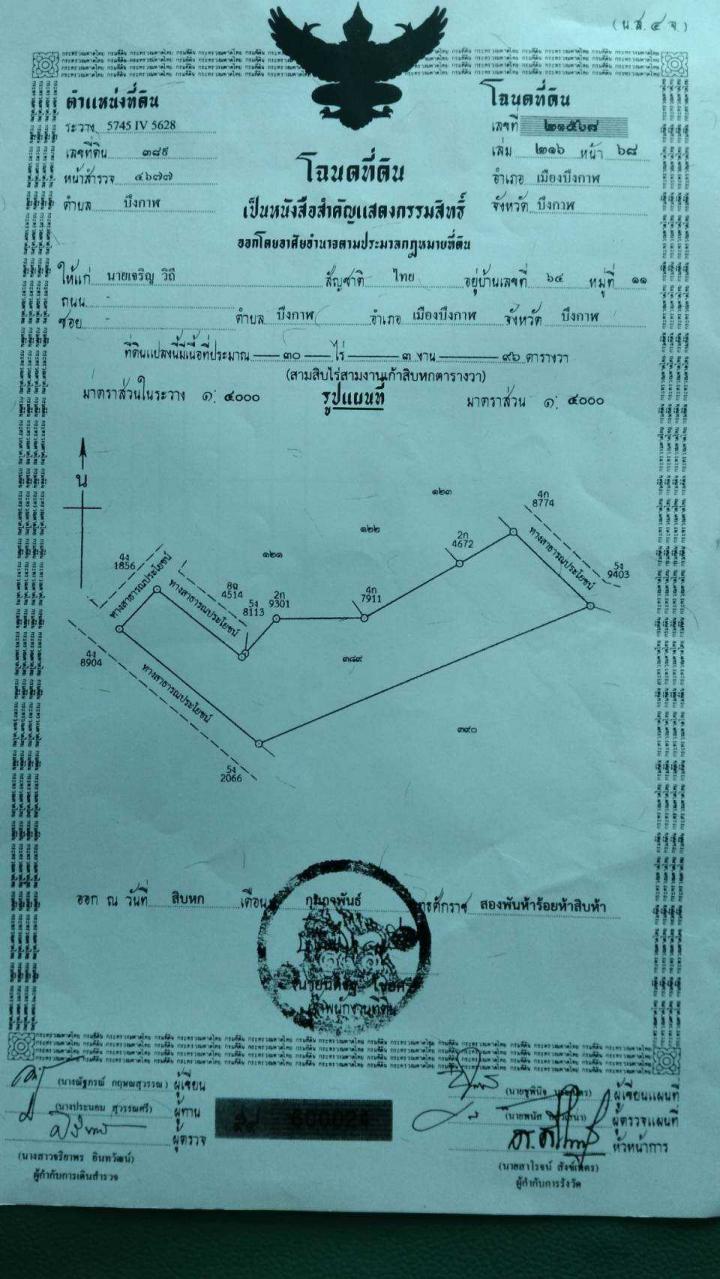 (น.ส.๔ จ)
ตำแหน่งที่ดิน
ระวาง 5745 IV 5628
เลขที่ดิน ๓๘๙
หน้าสำรวจ ๔๖๗๗
ตำบล บึงกาฬ
โฉนดที่ดิน
เลขที่ ๒๑๕๖๘
เล่ม ๒๑๖ หน้า ๖๘
อำเภอ เมืองบึงกาฬ
จังหวัด บึงกาฬ
โฉนดที่ดิน
เป็นหนังสือสำคัญแสดงกรรมสิทธิ์
ออกโดยอาศัยอำนาจตามประมวลกฎหมายที่ดิน
ให้แก่ นายเจริญ วิถี สัญชาติ ไทย อยู่บ้านเลขที่ ๖๔ หมู่ที่ ๑๑
ถนน -
ซอย - ตำบล บึงกาฬ อำเภอ เมืองบึงกาฬ จังหวัด บึงกาฬ
ที่ดินแปลงนี้มีเนื้อที่ประมาณ ๓๐ ไร่ ๓ งาน ๙๖ ตารางวา
(สามสิบไร่สามงานเก้าสิบหกตารางวา)
มาตราส่วนในระวาง ๑: ๔๐๐๐ รูปแผนที่ มาตราส่วน ๑: ๔๐๐๐
น
๑๒๓
๑๒๒
๑๒๑
4ก
8774
2ก
4672
ทางสาธารณประโยชน์
5ง
9403
4ง
1856
ทางสาธารณประโยชน์
ทางสาธารณประโยชน์
4514
5ง
8113
2ก
9301
4ก
7911
4ง
8904
ทางสาธารณประโยชน์
๓๘๙
๓๙๐
5ง
2066
ออก ณ วันที่ สิบหก เดือน กุมภาพันธ์ พุทธศักราช สองพันห้าร้อยห้าสิบห้า
เจ้าพนักงานที่ดิน
(นางณัฐภรณ์ กฤษณสุวรรณ) ผู้เขียน
(นางประนอม สุวรรณศรี) ผู้ทาน
ผู้ตรวจ
(นางสาวจริยาพร อินทวัฒน์)
ผู้กำกับการเดินสำรวจ
ผู้เขียนแผนที่
ผู้ตรวจแผนที่
หัวหน้าการ
(นายสาโรจน์ สังข์เพ็ชร)
ผู้กำกับการรังวัด